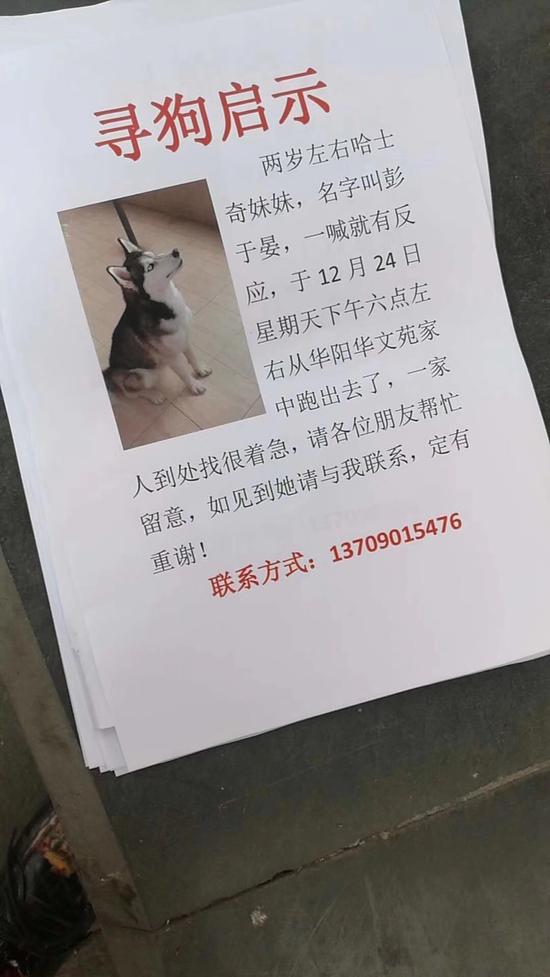 寻狗启示
两岁左右哈士
奇妹妹，名字叫彭
于晏，一喊就有反
应，于 12 月 24 日
星期天下午六点左
右从华阳华文苑家
中跑出去了，一家
人到处找很着急，请各位朋友帮忙
留意，如见到她请与我联系，定有
重谢！
联系方式：13709015476